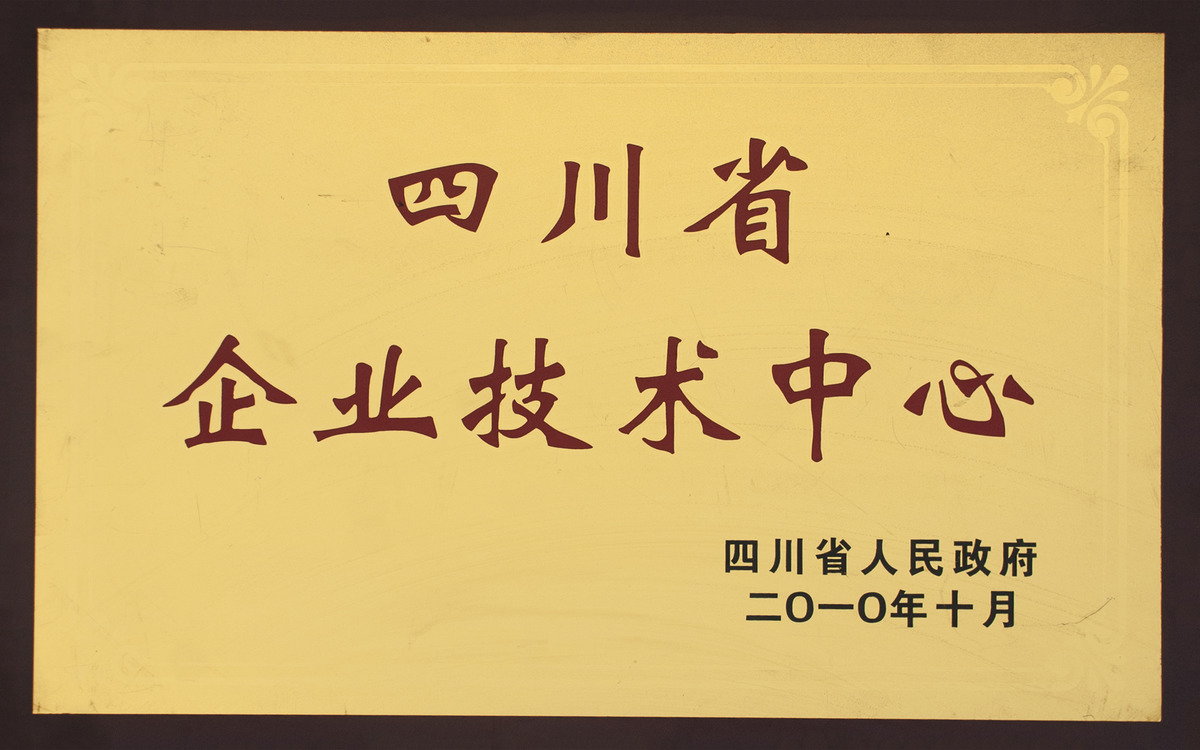 四川省
企业技术中心
四川省人民政府
二〇一〇年十月